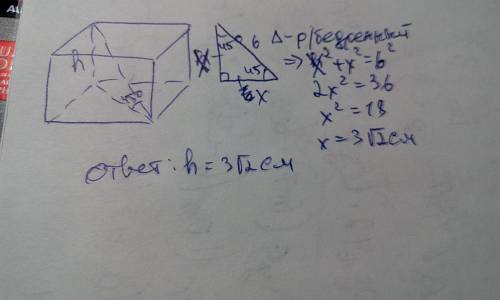 h
45°
x
45
6
45
x
Δ - р/бедренный
⇒ x² + x² = 6²
2x² = 36
x² = 18
x = 3√2 см
ответ: h = 3√2 см